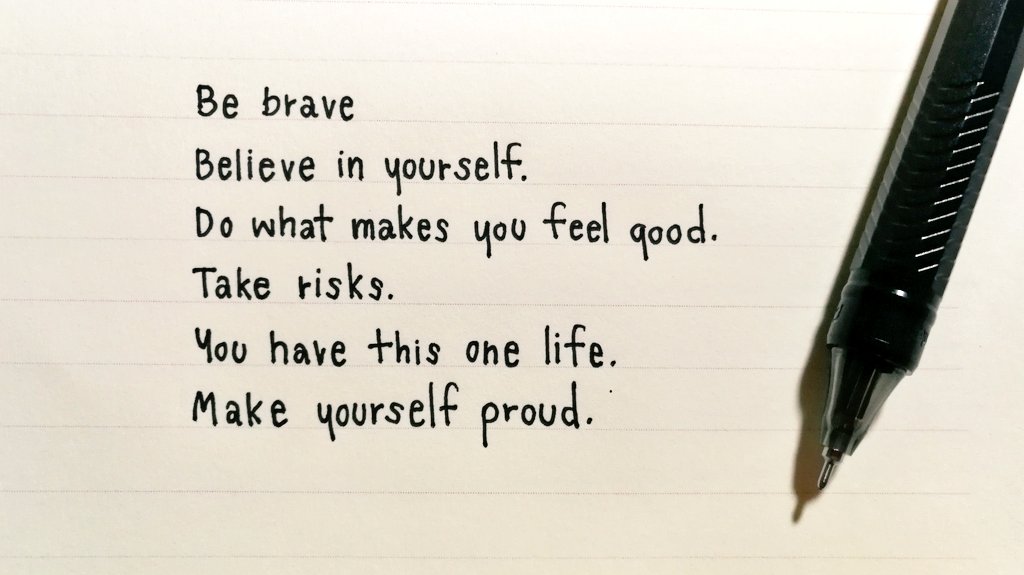 Be brave
Believe in yourself.
Do what makes you feel good.
Take risks.
You have this one life.
Make yourself proud.